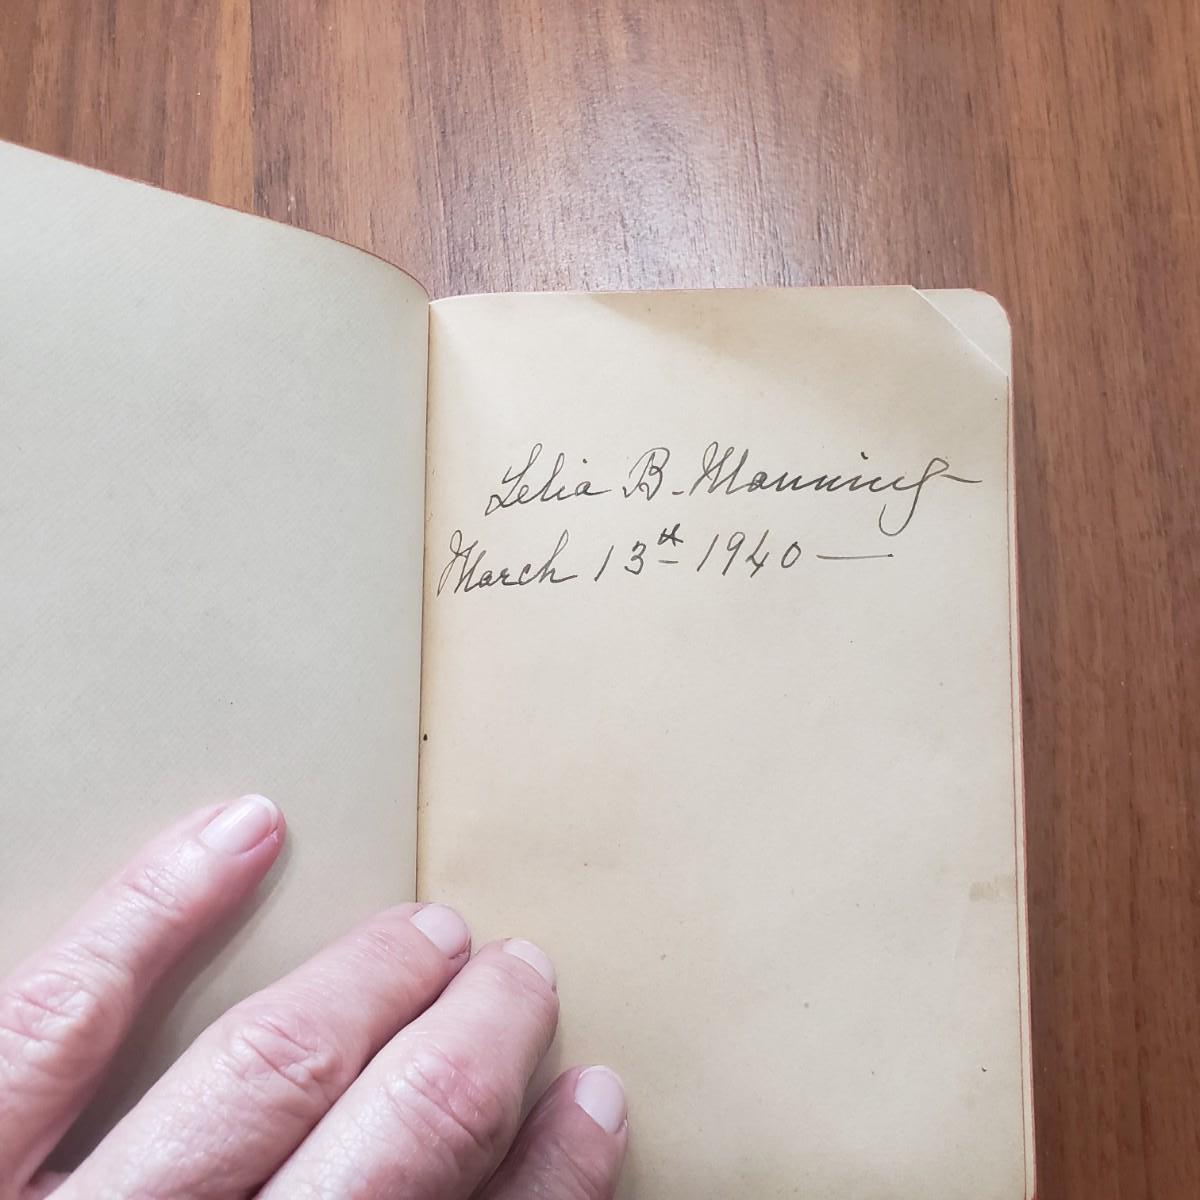 Lelia B. Manning
March 13th 1940 —